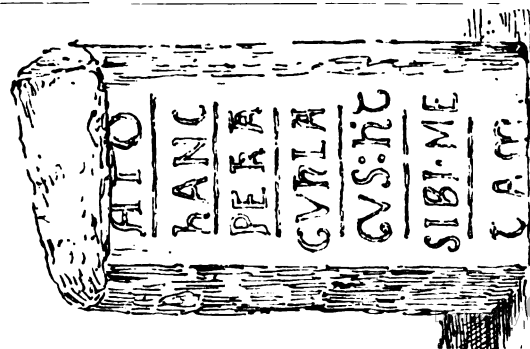 AIO
hANC
PETRA
GVhLA
CVS:hiT
SIBI·ME
TAM